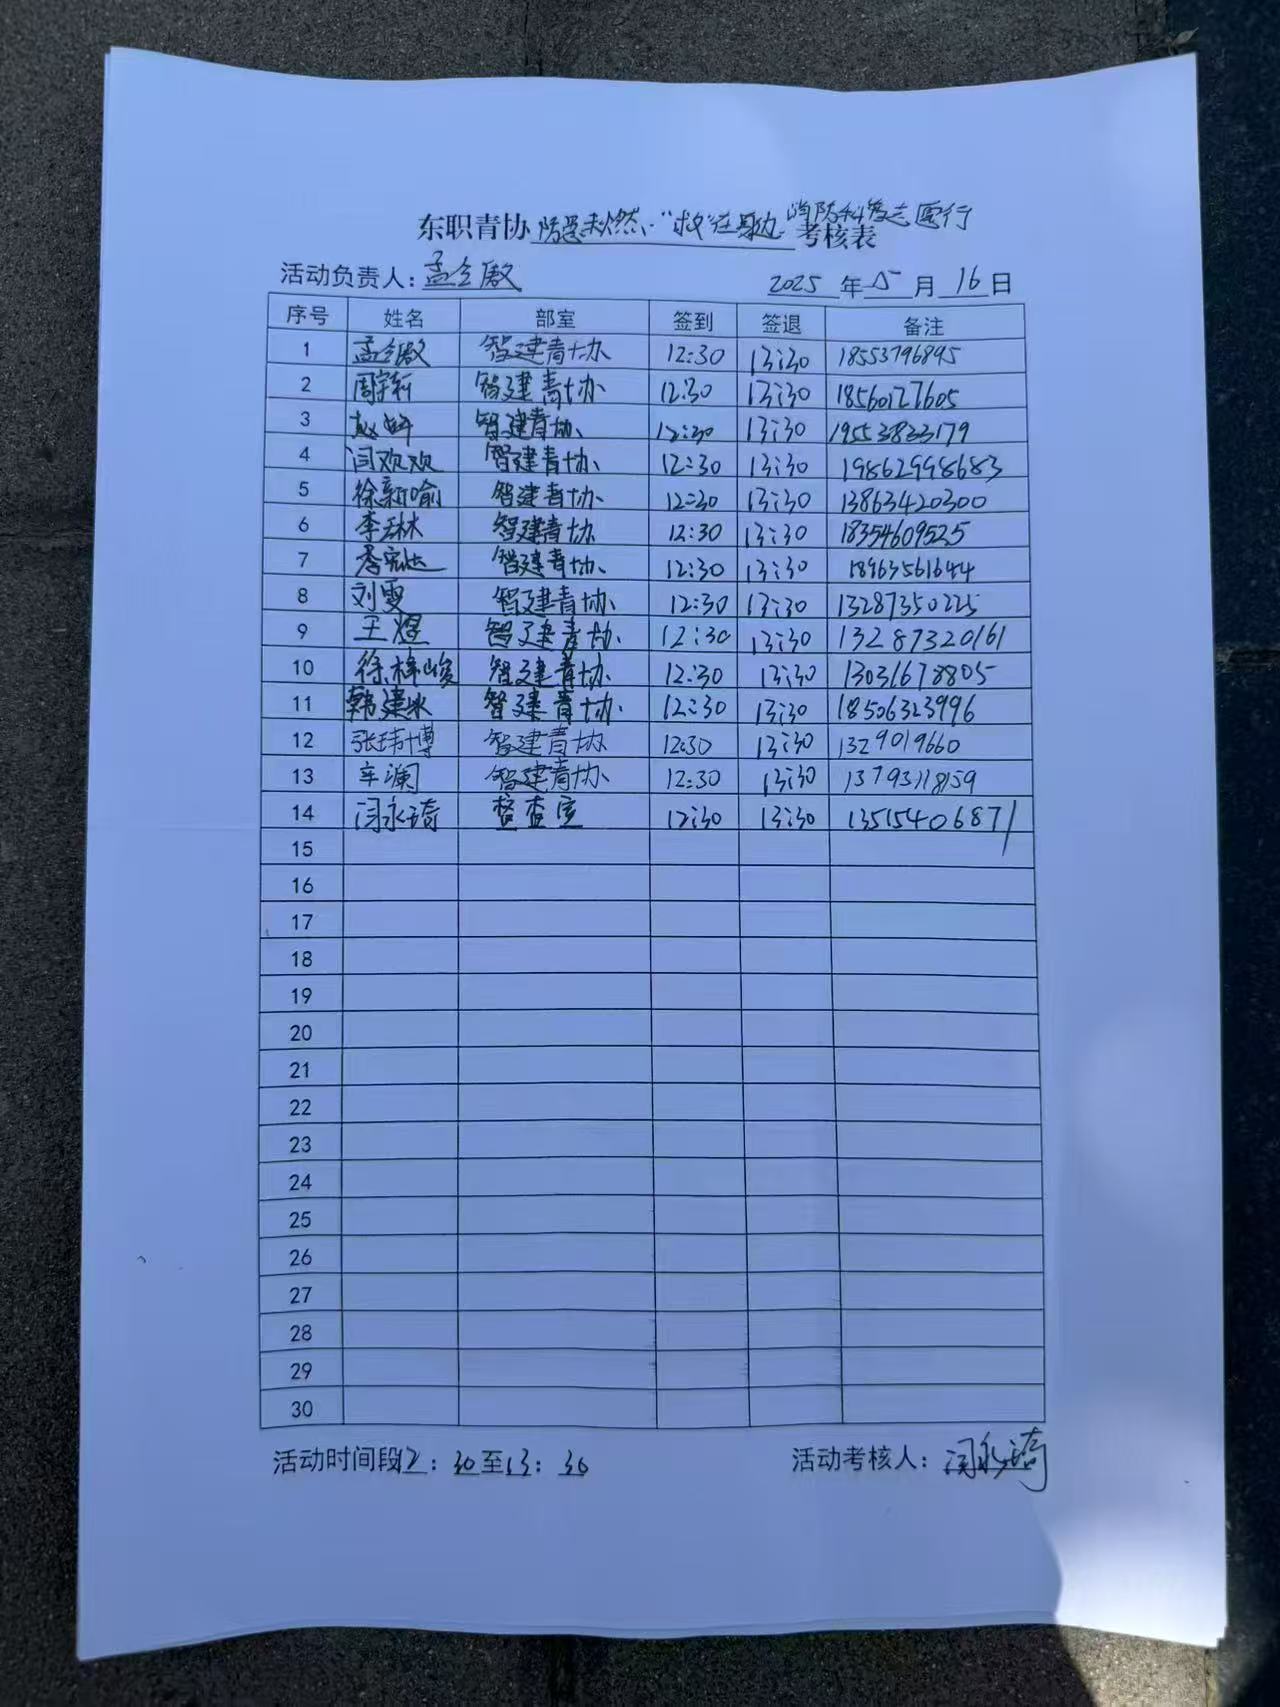 消防科普志愿行
东职青协 防患未然、“救”在身边 考核表
活动负责人：孟令傲 2025 年 5 月 16 日
序号 姓名 部室 签到 签退 备注
1 孟令傲 智建青协 12:30 13:30 18553796895
2 周宇轩 智建青协 12:30 13:30 18560127605
3 赵 智建青协 12:30 13:30 19553833179
4 闫欢欢 智建青协 12:30 13:30 19862998683
5 徐新喻 智建青协 12:30 13:30 13863420300
6 李琳 智建青协 12:30 13:30 18354609525
7 智建青协 12:30 13:30 18963561644
8 刘雯 智建青协 12:30 13:30 13287350225
9 王煜 智建青协 12:30 13:30 13287320161
10 徐梓峻 智建青协 12:30 13:30 13031678805
11 韩建 智建青协 12:30 13:30 18506323996
12 张玮博 智建青协 12:30 13:30 1329019660
13 车澜 智建青协 12:30 13:30 13793118159
14 闫永琦 督查室 12:30 13:30 13515406871
15
16
17
18
19
20
21
22
23
24
25
26
27
28
29
30
活动时间段12：30至13：30 活动考核人：闫永琦